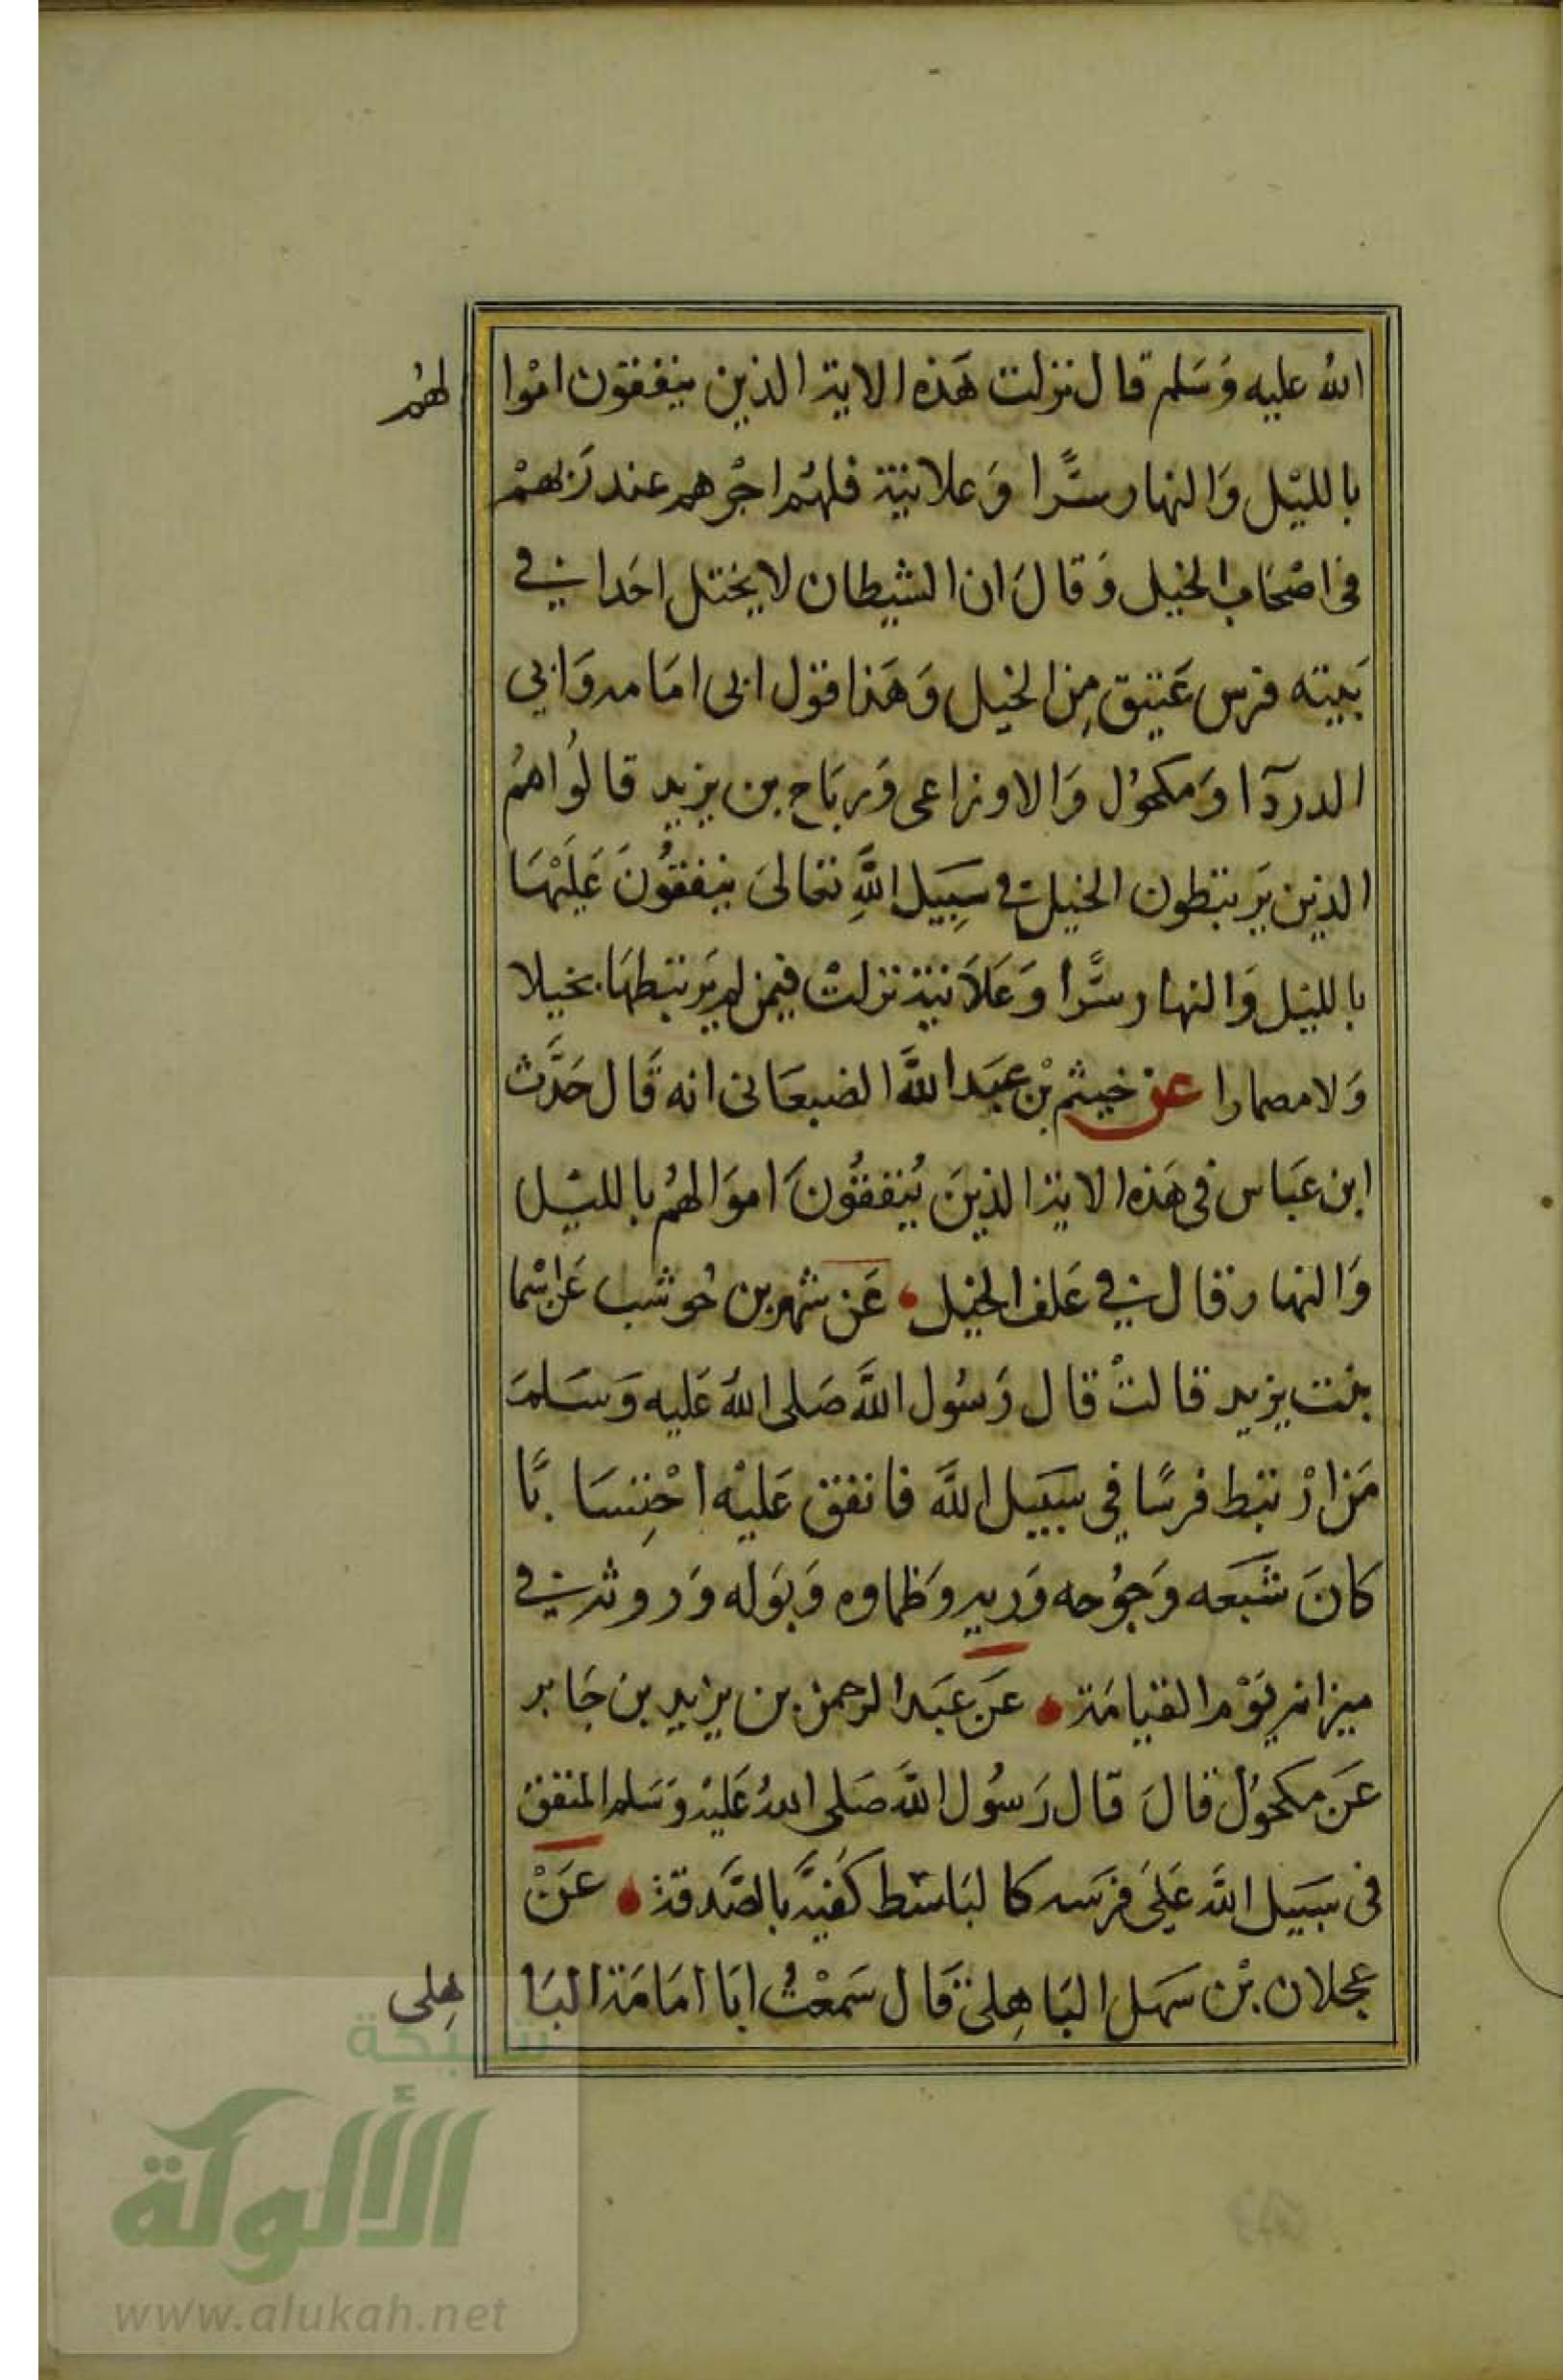 الله عليه وَسَلم قال نزلت هَذه الاية الذين ينفقون اموا لهُم
بالليْل وَالنهار سرًّا وَعلانية فلهُم اجْرهم عند رَبهمْ
في اصْحَاب الخيل وَقالَ ان الشيطان لا يختل احَدا في
بَيته فرس عَتيق مِن الخيل وَهَذا قول ابى امَامه وَابي
الدردآا وَمكحُول وَالاوزاعى وَرباح بن يزيد قالُوا همُ
الذين يَرتبطون الخيل في سَبِيَل اللَّهِ تعَالىَ ينفقُونَ عَليْهَا
بالليْل وَالنهار سرًّا وَعَلاَنية نزلتْ فيمن لم يَرتبطهَا بخيلا
وَلا مصمارا عن خيثم بْن عبَد اللَّه الضبعَانى انه قَال حَدَّث
ابن عَباس في هَذه الاية الذينَ يُنفقُونَ اموَالهُم بالليْل
وَالنهار قال في عَلف الخيْل عَن شهر بن حُوشب عَن اسْما
بنت يزيد قالتْ قال رَسُول اللَّه صَلى اللهُ عَليه وَسَلمَ
مَن ارْتبط فرسًا في سبَيل اللَّه فانفق عَليْه احْتِسَابًا
كانَ شَبَعَه وَجوُعه وَريه وَظماوه وَبَوله وَروثه في
ميزانه يَوْم القيامَة عَن عَبَد الرحمن بن يزيد بن جَابر
عَن مكحُول قالَ قال رَسُول اللَّه صَلى اللهُ عَليْه وَسَلم المنفق
في سبَيل اللَّه عَلىَ فرَسه كالبَاسط كَفيَّه بالصَّدقة عَنْ
عجلان بْن سَهل البَاهِلىّ قَال سَمعْتُ ابَا امَامَة البَا هِلى
شبكة
الألوكة
www.alukah.net